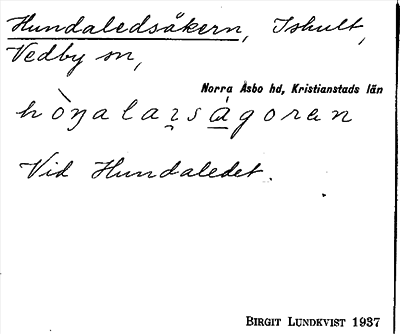 Hundaledsåkern, Ishult,
Vedby sn,
Norra Åsbo hd, Kristianstads län
hòŋalaʀ̥ságoran
Vid Hundaledet.
BIRGIT LUNDKVIST 1937